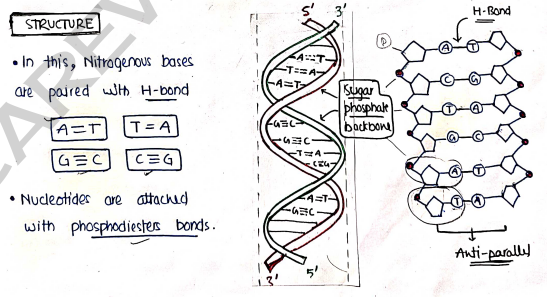 STRUCTURE
• In this, Nitrogenous bases
are paired with H-bond
A=T T=A
G≡C C≡G
• Nucleotides are attached
with phosphodiesters bonds.
5' 3'
A=T
T=A
A=T
G≡C
G≡C
T=A
C≡G
A=T
G≡C
3' 5'
Sugar
phosphate
backbone
H-Bond
P
A T
C G
T A
G C
A T
T A
Anti-parallel